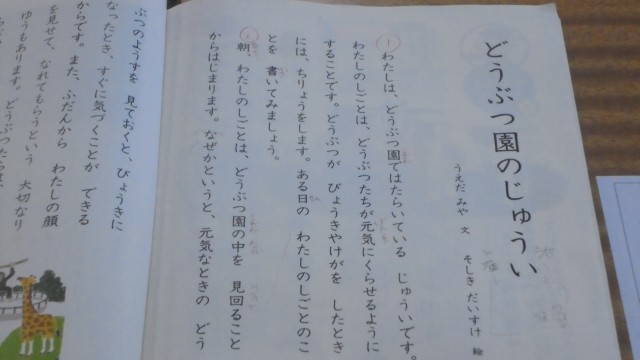 どうぶつ園のじゅうい
うえだ みや 文
そしき だいすけ 絵
① わたしは、どうぶつ園ではたらいている じゅういです。
わたしのしごとは、どうぶつたちが元気にくらせるように
することです。どうぶつが びょうきやけがを したとき
には、ちりょうをします。ある日の わたしのしごとのこ
とを 書いてみましょう。
朝、わたしのしごとは、どうぶつ園の中を 見回ること
からはじまります。なぜかというと、元気なときの どう
ぶつのようすを 見ておくと、びょうきに
なったとき、すぐに気づくことが できる
からです。また、ふだんから わたしの顔
を見せて、なれてもらうという 大切なり
ゆうもあります。どうぶつたちは、